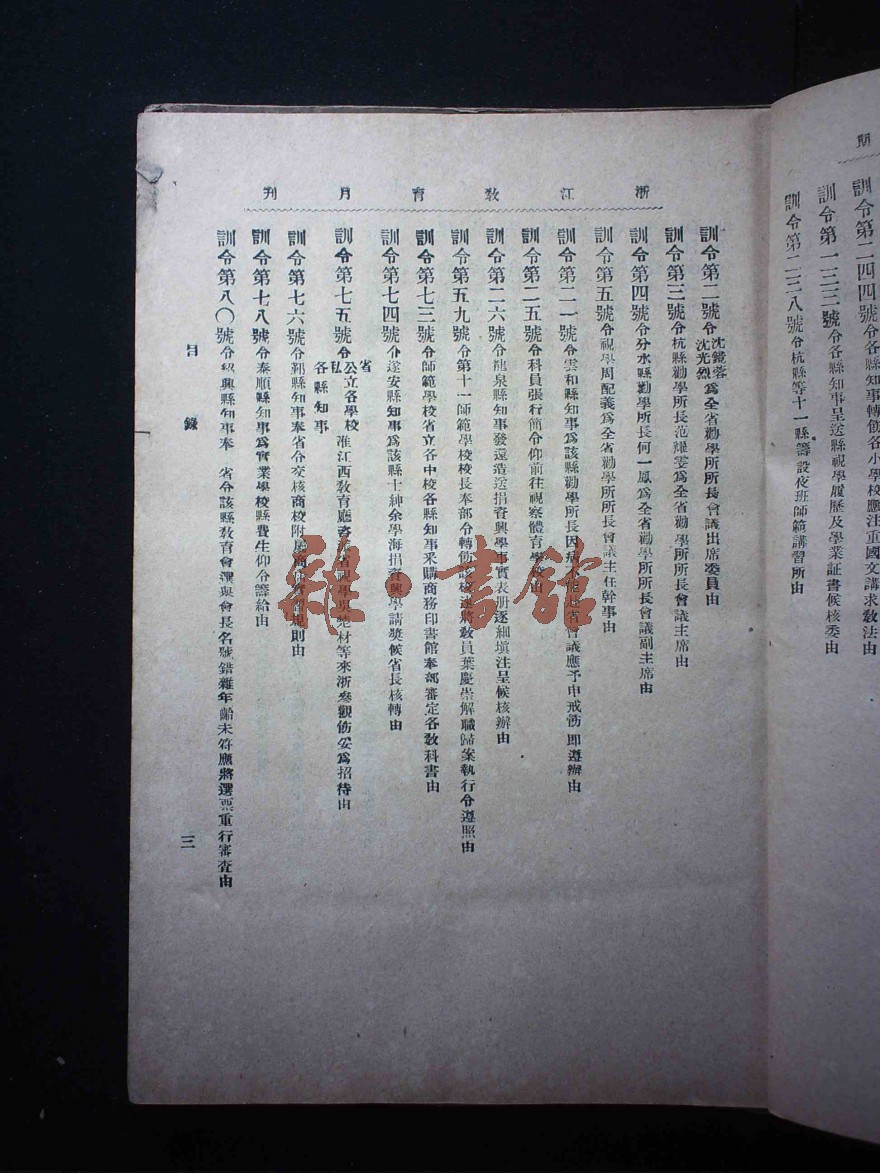 期
訓令第二四四號令各縣知事轉飭各小學校應注重國文講求敎法由
訓令第一三三號令各縣知事呈送縣視學履歷及學業証書候核委由
訓令第二三八號令杭縣等十一縣籌設夜班師範講習所由
浙江敎育月刊
訓令第二號令沈鏡蓉沈光烈爲全省勸學所所長會議出席委員由
訓令第三號令杭縣勸學所長范耀雯爲全省勸學所所長會議主席由
訓令第四號令分水縣勸學所長何一鳳爲全省勸學所所長會議副主席由
訓令第五號令視學周配義爲全省勸學所所長會議主任幹事由
訓令第二一號令雲和縣知事爲該縣勸學所長因病不能赴省會議應予申戒飭即遵辦由
訓令第二五號令科員張行簡令仰前往視察體育學校由
訓令第二六號令龍泉縣知事發還造送捐資興學事實表册逐細填注呈候核辦由
訓令第五九號令第十一師範學校校長奉部令轉飭該校速將敎員葉慶崇解職歸案執行令遵照由
訓令第七三號令師範學校省立各中校各縣知事采購商務印書館奉部審定各敎科書由
訓令第七四號令遂安縣知事爲該縣士紳余學海捐資興學請奬候省長核轉由
訓令第七五號令省私公立各學校各縣知事准江西敎育廳咨省視學吳 材等來浙叅觀飭妥爲招待由
訓令第七六號令鄞縣知事奉省令交核商校附屬商 實習規則由
訓令第七八號令泰順縣知事爲實業學校縣費生仰令籌給由
訓令第八〇號令紹興縣知事奉 省令該縣敎育會選與會長名號錯雜年齡未符應將選票重行審查由
目錄
三
雜·書館